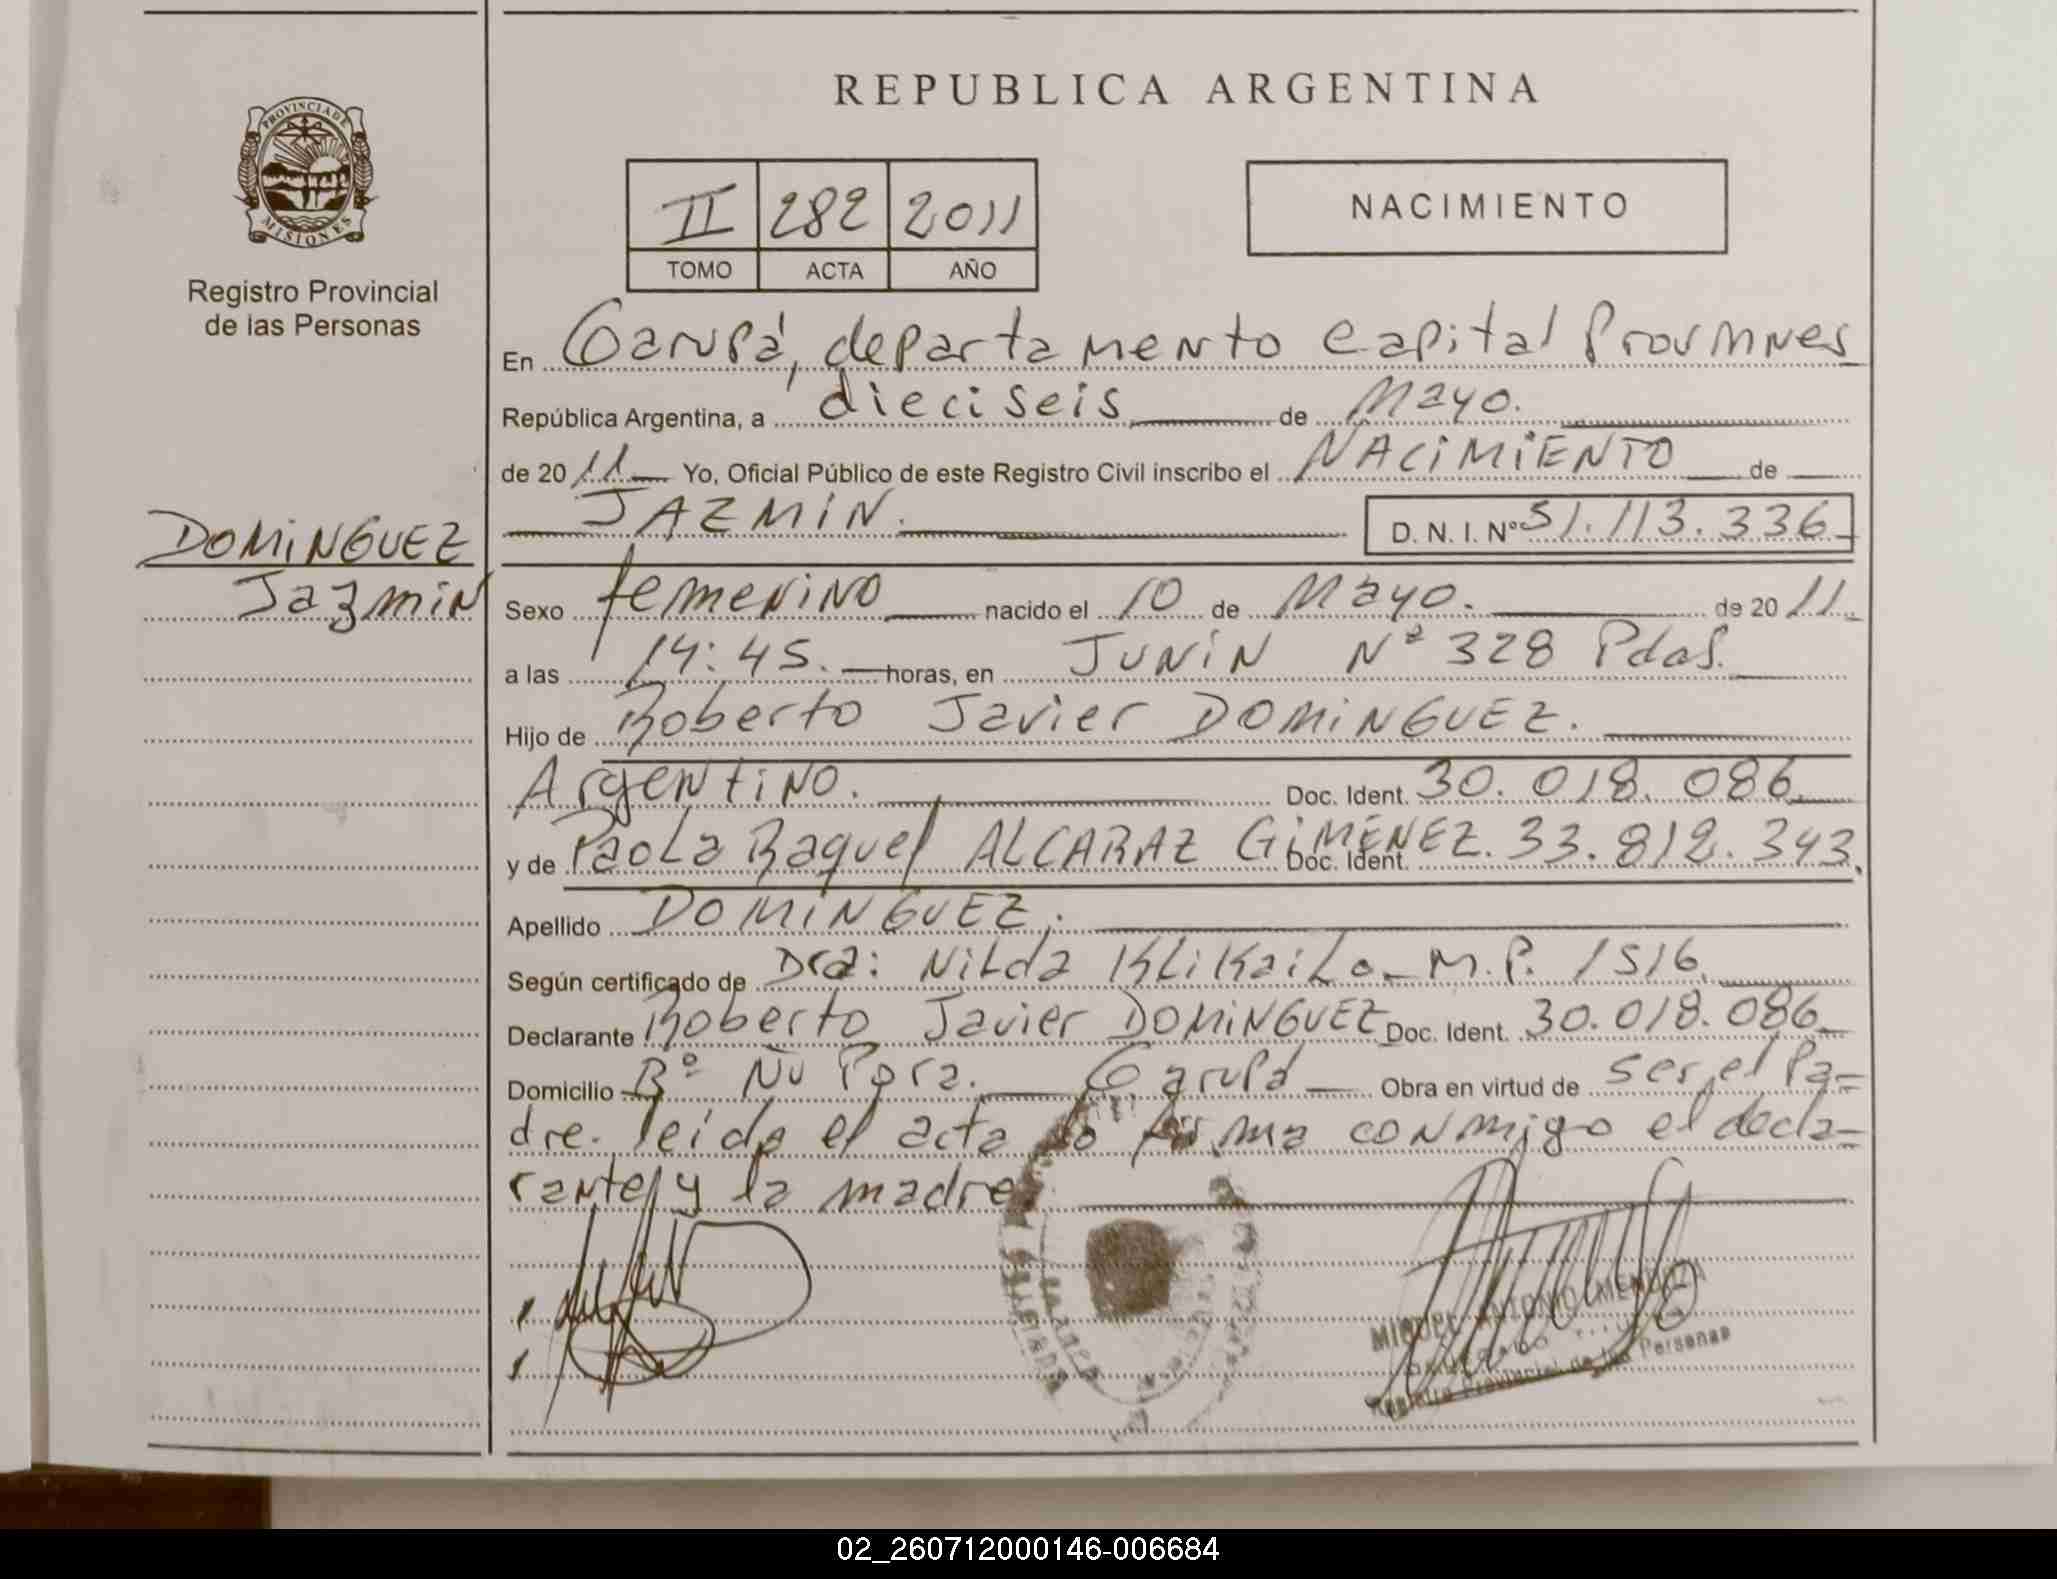 REPUBLICA ARGENTINA
PROVINCIA DE
MISIONES
Registro Provincial
de las Personas
II 282 2011
TOMO ACTA AÑO
NACIMIENTO
En Garupá, departamento Capital Prov Mnes
República Argentina, a dieciseis de Mayo.
de 2011 Yo, Oficial Público de este Registro Civil inscribo el NACIMIENTO de
JAZMIN. D. N. I. Nº 51.113.336
DOMINGUEZ
Jazmin
Sexo femenino nacido el 10 de Mayo. de 2011.
a las 14:45. horas, en JUNIN Nº 328 Pdas.
Hijo de Roberto Javier DOMINGUEZ.
Argentino. Doc. Ident. 30.018.086
y de Paola Raquel ALCARAZ GiMENEZ. Doc. Ident. 33.812.343.
Apellido DOMINGUEZ.
Según certificado de Dra: Nilda KLiKaiLo M.P. 1516.
Declarante Roberto Javier DOMINGUEZ Doc. Ident. 30.018.086
Domicilio Bº Ñu Pora. Garupá Obra en virtud de ser el Pa-
dre. leida el acta lo firma conmigo el decla-
rante y la madre.
MIGUEL ANTONIO MENDOZA
Registro Provincial de las Personas
02_260712000146-006684